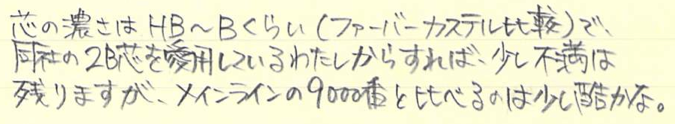 芯の濃さはHB〜Bくらい(ファーバーカステル比較)で、
同社の2B芯を愛用しているわたしからすれば、少し不満は
残りますが、メインラインの9000番と比べるのは少し酷かな。